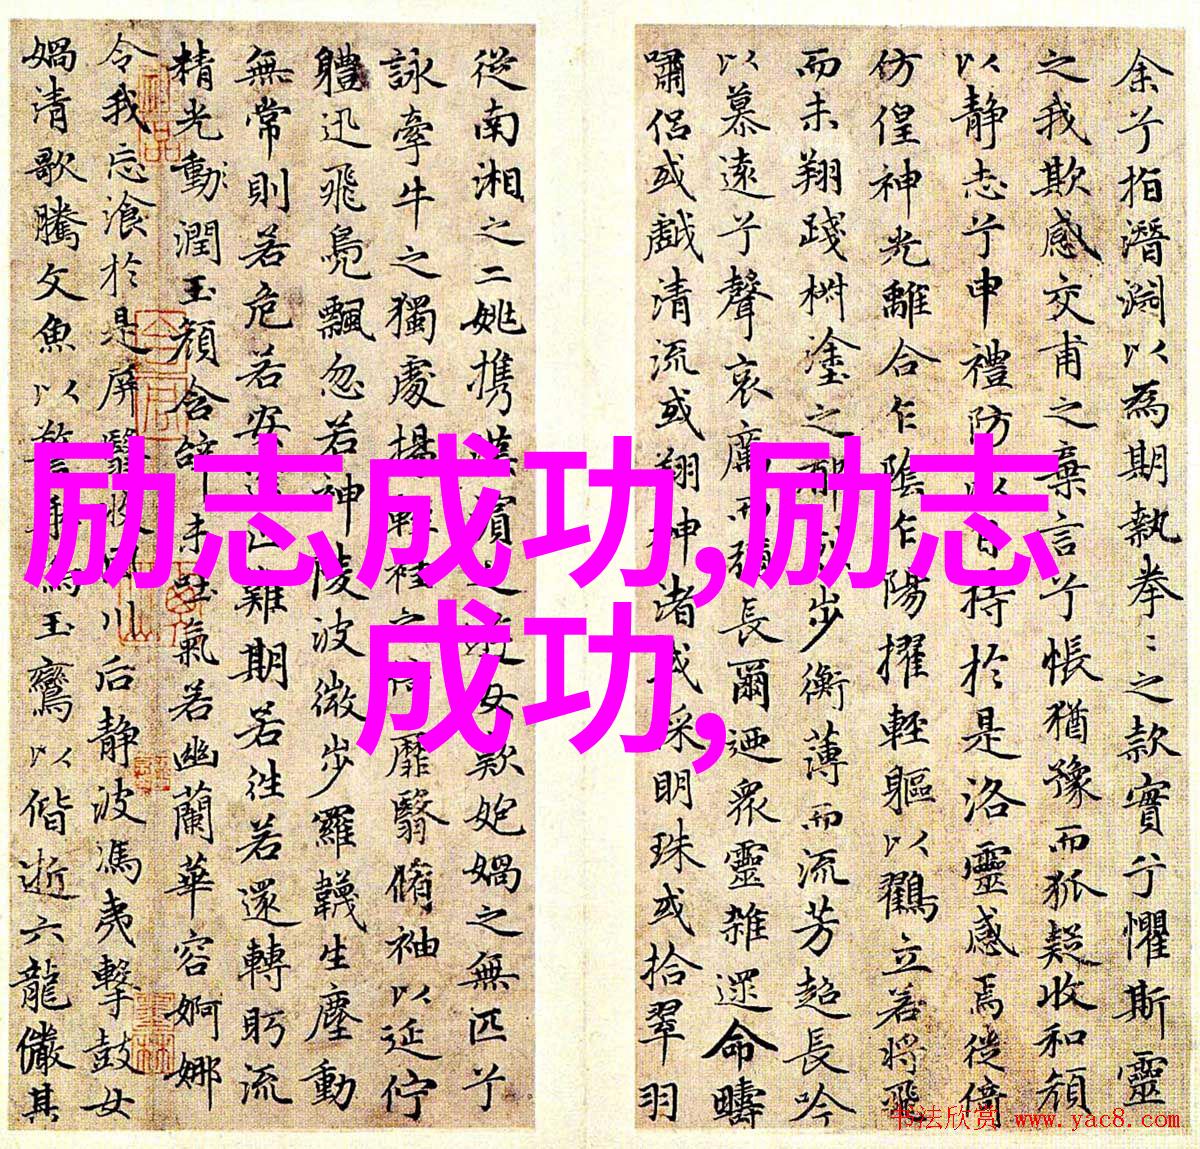 励志成功,励志
成功,
余兮指潛淵以為期執拳〻之款實兮懼斯靈
之我欺感交甫之棄言兮悵猶豫而狐疑收和顏
以静志兮申禮防以自持於是洛靈感焉徙倚
仿偟神光離合乍陰乍陽擢輕軀以鶴立若將飛
而未翔踐椒塗之郁烈步衡薄而流芳超長吟
以慕遠兮聲哀厲而彌長爾迺眾靈雜遝命疇
嘯侶或戲清流或翔神渚或采明珠或拾翠羽
從南湘之二姚攜漢濱之遊女歎匏媧之無匹兮
詠牽牛之獨處揚輕袿之猗靡翳脩袖以延佇
體迅飛鳧飄忽若神陵波微步羅韈生塵動
無常則若危若安進止難期若往若還轉眄流
精光動潤玉顏含辭未吐氣若幽蘭華容婀娜
令我忘飡於是屏翳收風川后静波馮夷擊鼓女
媧清歌騰文魚以警乘鳴玉鸞以偕逝六龍儼其
书法欣赏 www.yac8.com